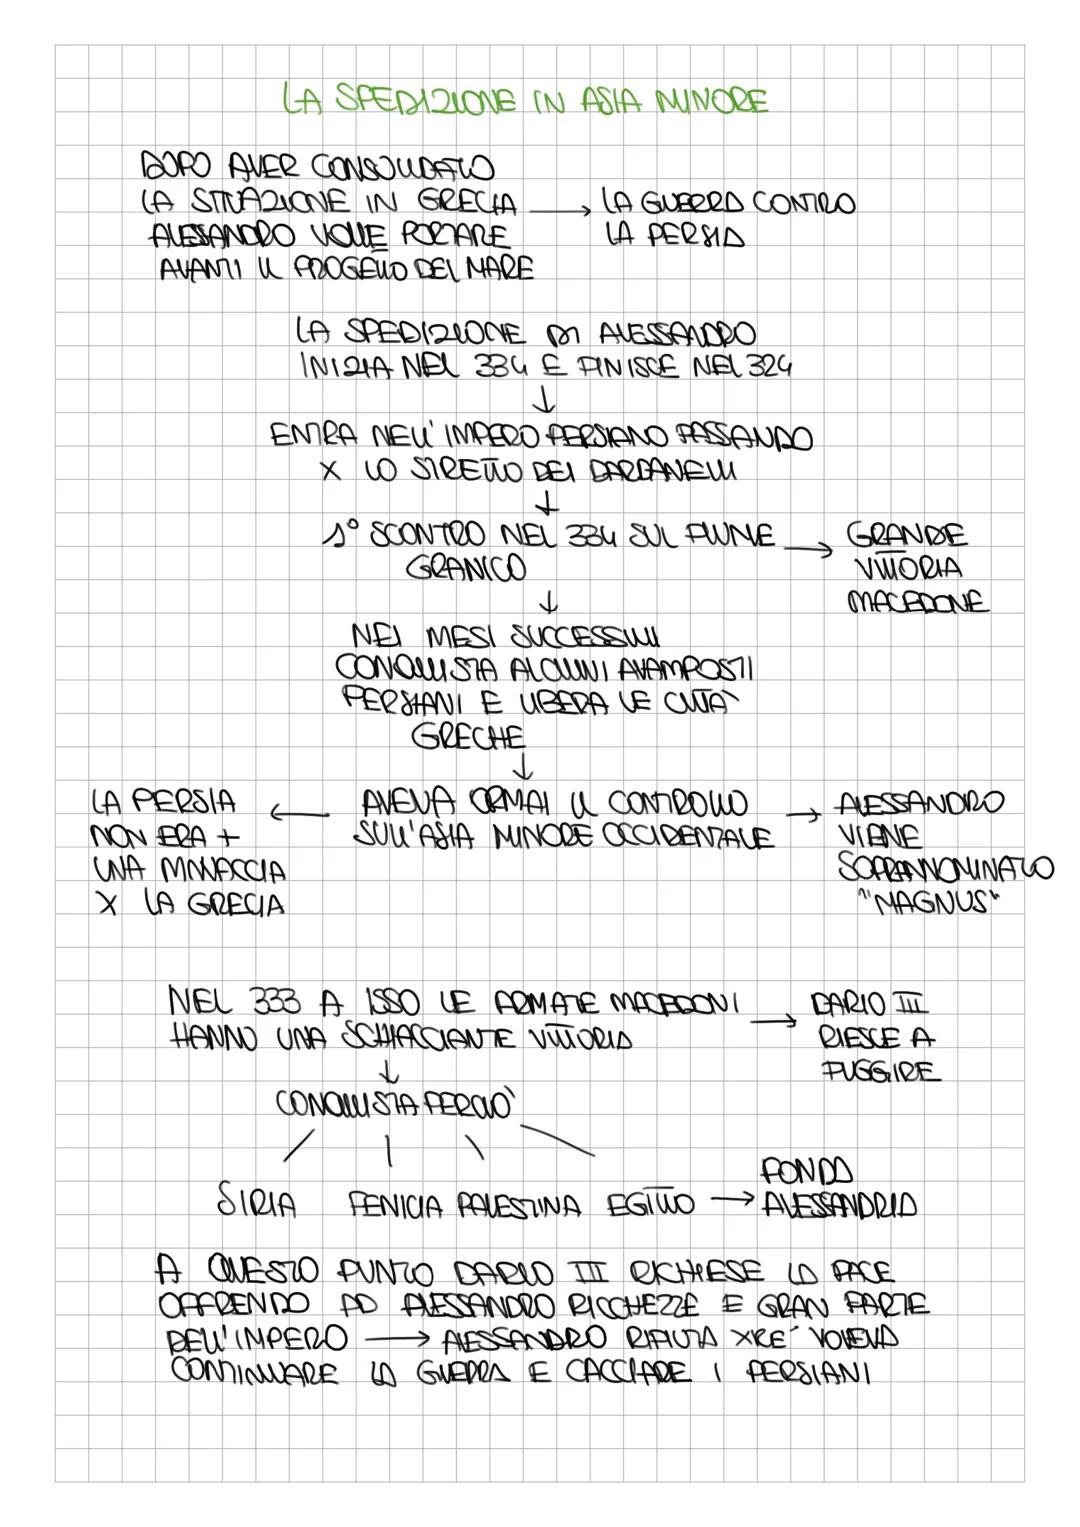 LA SPEDIZIONE IN ASIA MINORE
DOPO AVER CONSOLIDATO
LA SITUAZIONE IN GRECIA → LA GUERRA CONTRO
ALESSANDRO VOLLE PORTARE LA PERSIA
AVANTI IL PROGETTO DEL MARE
LA SPEDIZIONE DI ALESSANDRO
INIZIA NEL 334 E FINISCE NEL 324
↓
ENTRA NELL'IMPERO PERSIANO PASSANDO
X LO STRETTO DEI DARDANELLI
↓
1° SCONTRO NEL 334 SUL FIUME → GRANDE
GRANICO VITTORIA
MACEDONE
↓
NEI MESI SUCCESSIVI
CONQUISTA ALCUNI AVAMPOSTI
PERSIANI E LIBERA LE CITTA'
GRECHE
↓
LA PERSIA ← AVEVA ORMAI IL CONTROLLO → ALESSANDRO
NON ERA + SULL'ASIA MINORE OCCIDENTALE VIENE
UNA MINACCIA SOPRANNOMINATO
X LA GRECIA "MAGNUS"
NEL 333 A ISSO LE ARMATE MACEDONI → DARIO III
HANNO UNA SCHIACCIANTE VITTORIA RIESCE A
FUGGIRE
↓
CONQUISTA PERCIO'
FONDA
SIRIA FENICIA PALESTINA EGITTO → ALESSANDRIA
A QUESTO PUNTO DARIO III RICHIESE LA PACE
OFFRENDO AD ALESSANDRO RICCHEZZE E GRAN PARTE
DELL'IMPERO → ALESSANDRO RIFIUTA XRE' VOLEVA
CONTINUARE LA GUERRA E CACCIARE I PERSIANI